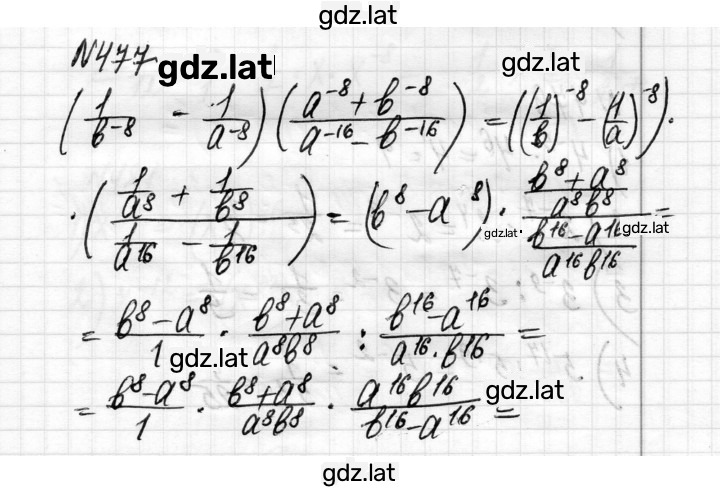 gdz.lat
N477
gdz.lat
gdz.lat
(1/b⁻⁸ - 1/a⁻⁸) ((a⁻⁸ + b⁻⁸)/(a⁻¹⁶ - b⁻¹⁶)) = ((1/b)⁻⁸ - (1/a)⁻⁸) ·
· ((1/a⁸ + 1/b⁸)/(1/a¹⁶ - 1/b¹⁶)) = (b⁸ - a⁸) · ((b⁸ + a⁸)/(a⁸b⁸))/((b¹⁶ - a¹⁶)/(a¹⁶b¹⁶)) =
gdz.lat
gdz.lat
= (b⁸ - a⁸)/1 · (b⁸ + a⁸)/(a⁸b⁸) : (b¹⁶ - a¹⁶)/(a¹⁶ · b¹⁶) =
gdz.lat
= (b⁸ - a⁸)/1 · (b⁸ + a⁸)/(a⁸b⁸) · (a¹⁶b¹⁶)/(b¹⁶ - a¹⁶) =
gdz.lat
gdz.lat